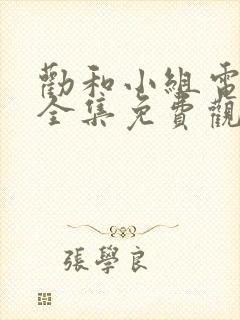 勸和小組電
全集免費觀
張學良